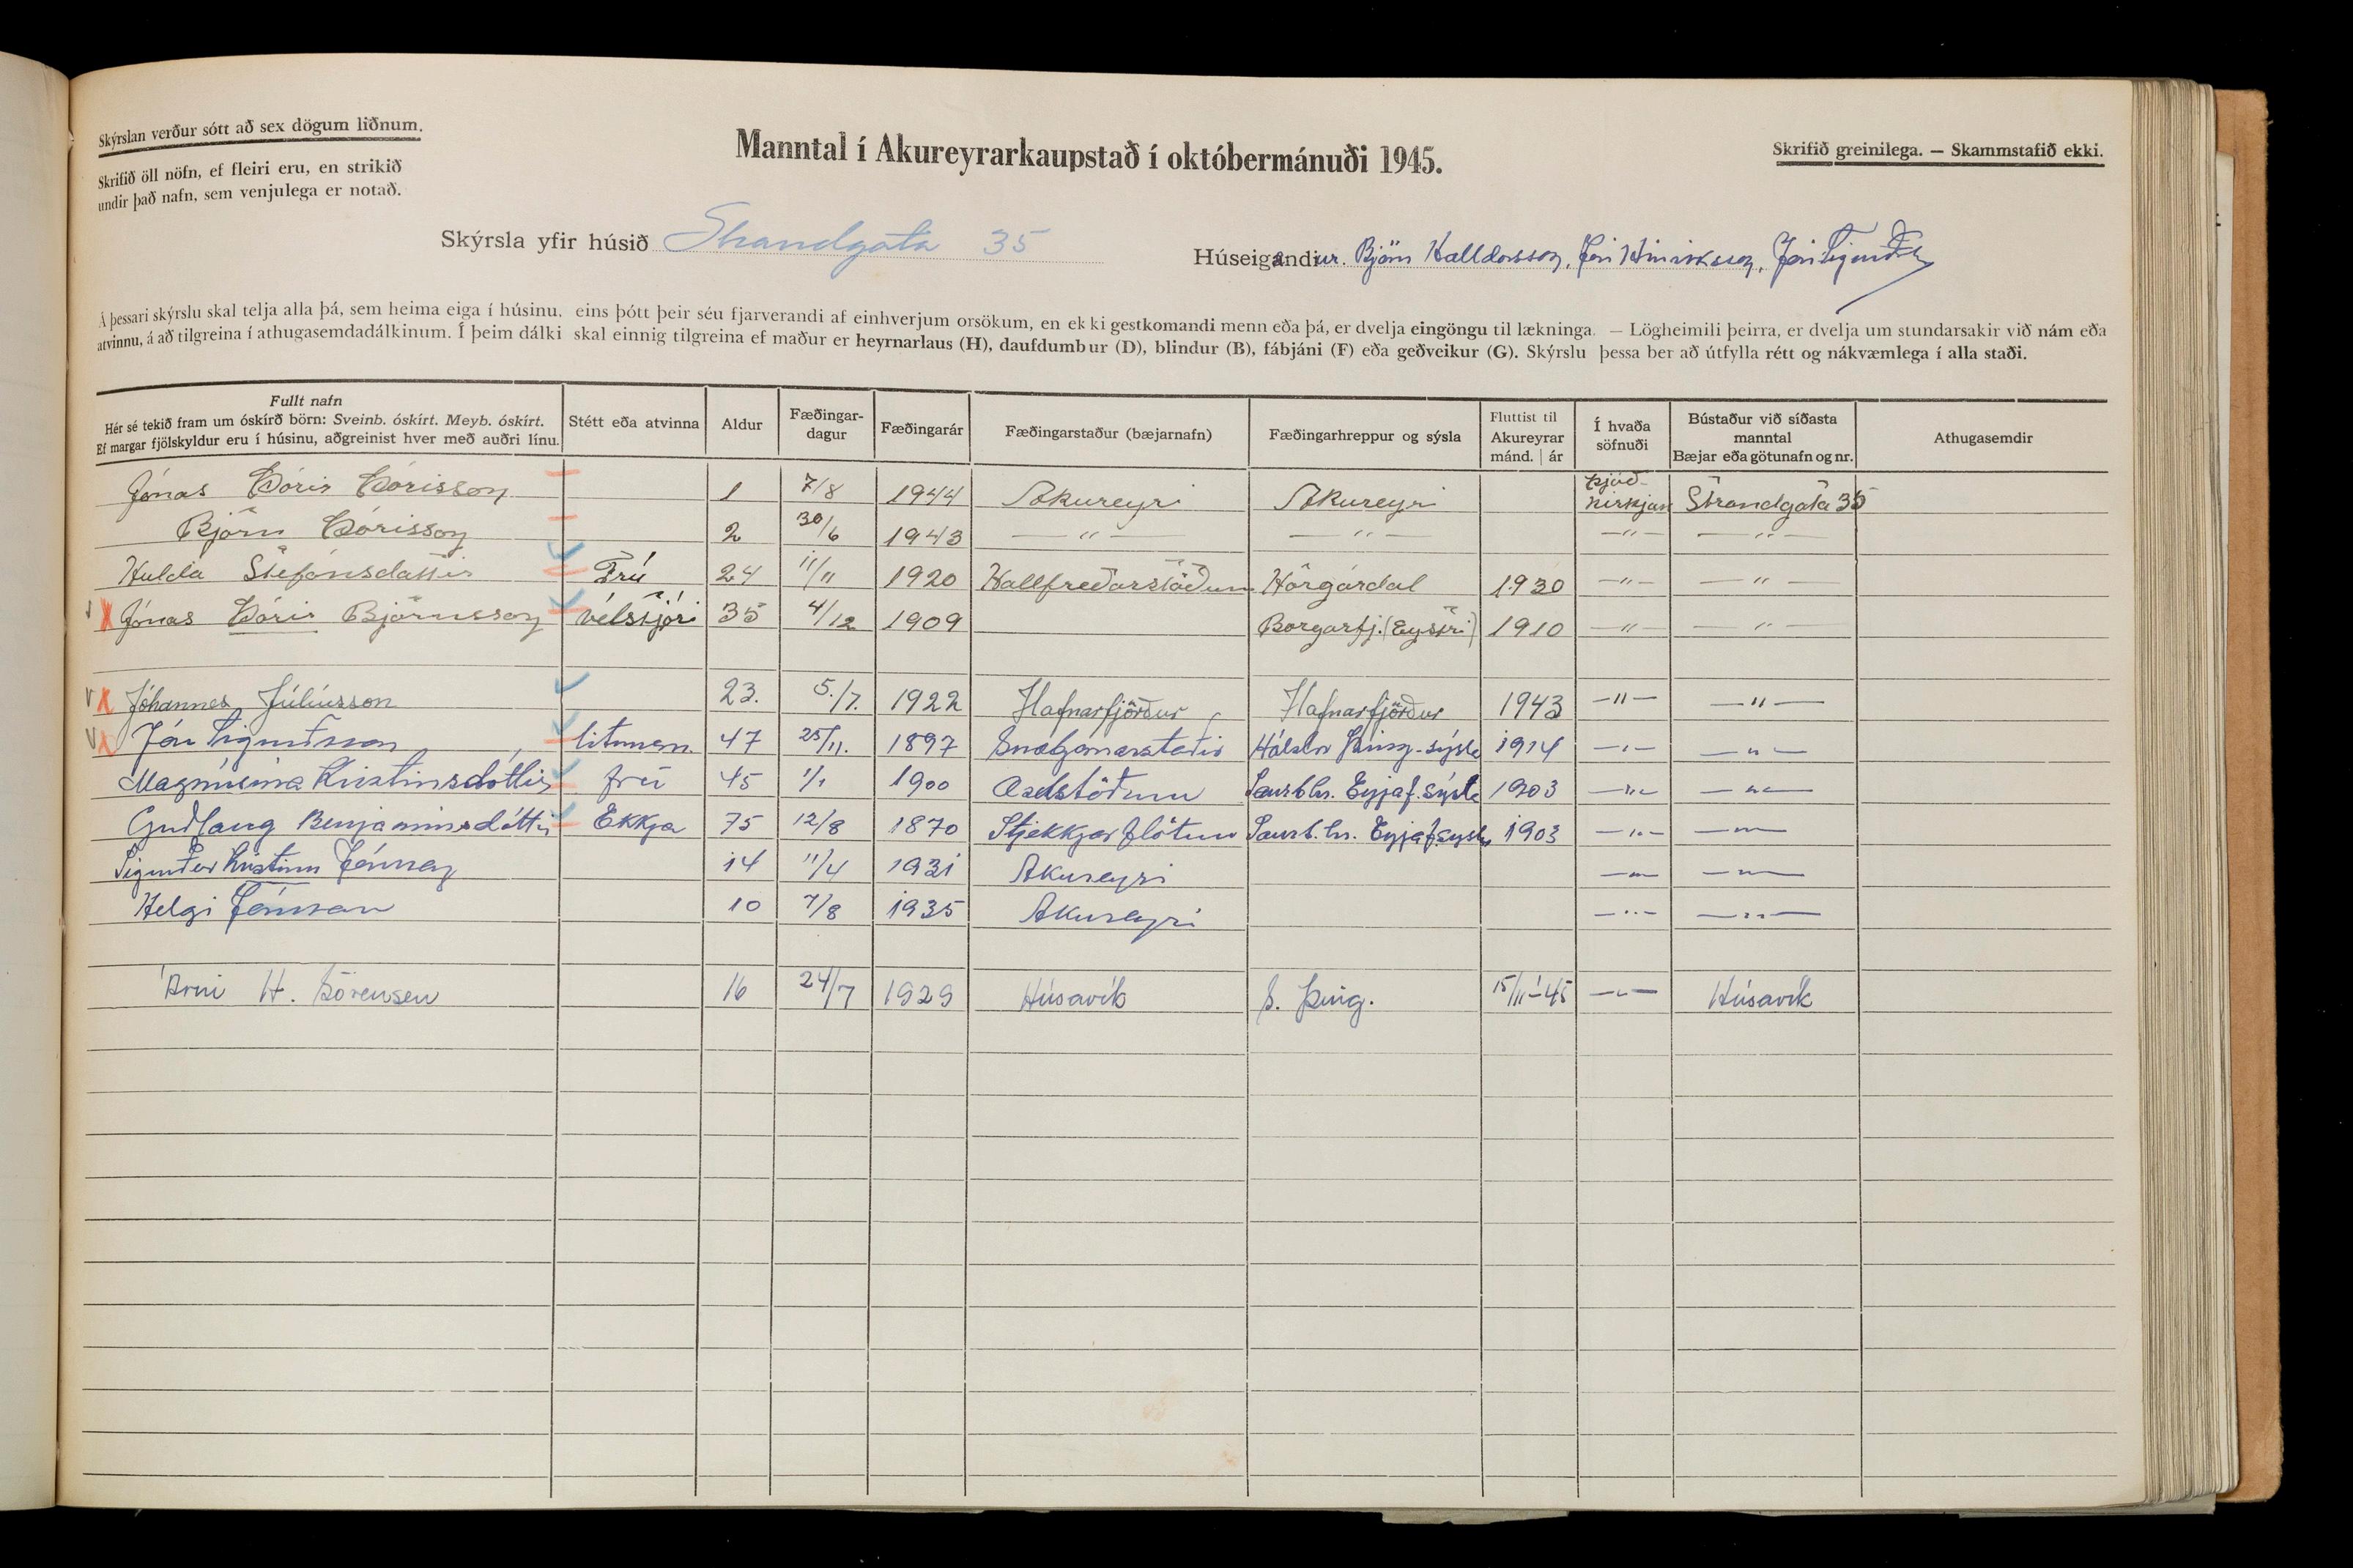 Skýrslan verður sótt að sex dögum liðnum.
Skrifið öll nöfn, ef fleiri eru, en strikið
undir það nafn, sem venjulega er notað.
Manntal í Akureyrarkaupstað í októbermánuði 1945.
Skrifið greinilega. — Skammstafið ekki.
Skýrsla yfir húsið Strandgata 35
Húseigandiur. Björn Halldórsson, Jón Hinriksson, Jón Sigurðsson
Á þessari skýrslu skal telja alla þá, sem heima eiga í húsinu, eins þótt þeir séu fjarverandi af einhverjum orsökum, en ekki gestkomandi menn eða þá, er dvelja eingöngu til lækninga. — Lögheimili þeirra, er dvelja um stundarsakir við nám eða
atvinnu, á að tilgreina í athugasemdadálkinum. Í þeim dálki skal einnig tilgreina ef maður er heyrnarlaus (H), daufdumbur (D), blindur (B), fábjáni (F) eða geðveikur (G). Skýrslu þessa ber að útfylla rétt og nákvæmlega í alla staði.
Fullt nafn
Hér sé tekið fram um óskírð börn: Sveinb. óskírt. Meyb. óskírt.
Ef margar fjölskyldur eru í húsinu, aðgreinist hver með auðri línu.
Stétt eða atvinna
Aldur
Fæðingar-
dagur
Fæðingarár
Fæðingarstaður (bæjarnafn)
Fæðingarhreppur og sýsla
Fluttist til
Akureyrar
mánd. | ár
Í hvaða
söfnuði
Bústaður við síðasta
manntal
Bæjar eða götunafn og nr.
Athugasemdir
Jónas Þórir Þórisson 1 7/8 1944 Akureyri Akureyri Þjóð-kirkjan Strandgata 35
Björn Þórisson 2 30/6 1943 —"— —"— —"— —"—
Hulda Stefánsdóttir Frú 24 11/11 1920 Hallfreðarstöðum Hörgárdal 1930 —"— —"—
Jónas Þórir Björnsson vélstjóri 35 4/12 1909 Borgarfj. (Eystri) 1910 —"— —"—
Jóhannes Júlíusson 23. 5./7. 1922 Hafnarfjörður Hafnarfjörður 1943 —"— —"—
Jón Sigurðsson 47 25/11. 1897 1914 —"— —"—
Magnúsína Kristinsdóttir frú 45 1/1 1900 Saurbhr. Eyjaf. sýsla 1903 —"— —"—
Guðlaug Benjamínsdóttir Ekkja 75 12/8 1870 Stjekkjarflötum Saurb.hr. Eyjaf.sýsla 1903 —"— —"—
Sigurður Kristinn Jónsson 14 11/4 1931 Akureyri —"— —"—
Helgi Jónsson 10 7/8 1935 Akureyri —"— —"—
Árni H. Sörensen 16 24/7 1929 Húsavík S. Þing. 15/11-45 —"— Húsavík